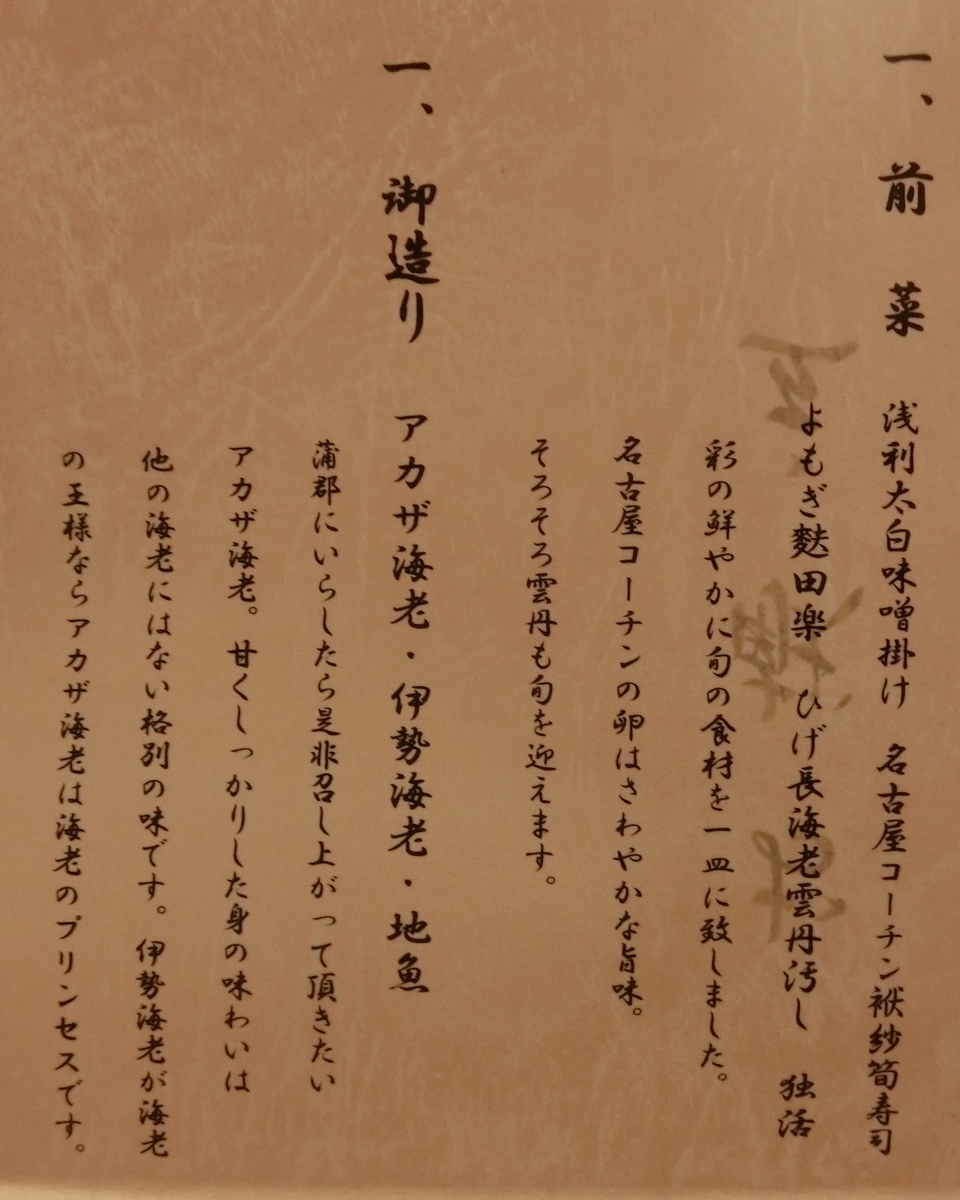 一、前菜 浅利太白味噌掛け 名古屋コーチン袱紗筍寿司
よもぎ麩田楽 ひげ長海老雲丹汚し 独活
彩の鮮やかに旬の食材を一皿に致しました。
名古屋コーチンの卵はさわやかな旨味。
そろそろ雲丹も旬を迎えます。
一、御造り アカザ海老・伊勢海老・地魚
蒲郡にいらしたら是非召し上がって頂きたい
アカザ海老。甘くしっかりした身の味わいは
他の海老にはない格別の味です。伊勢海老が海老
の王様ならアカザ海老は海老のプリンセスです。